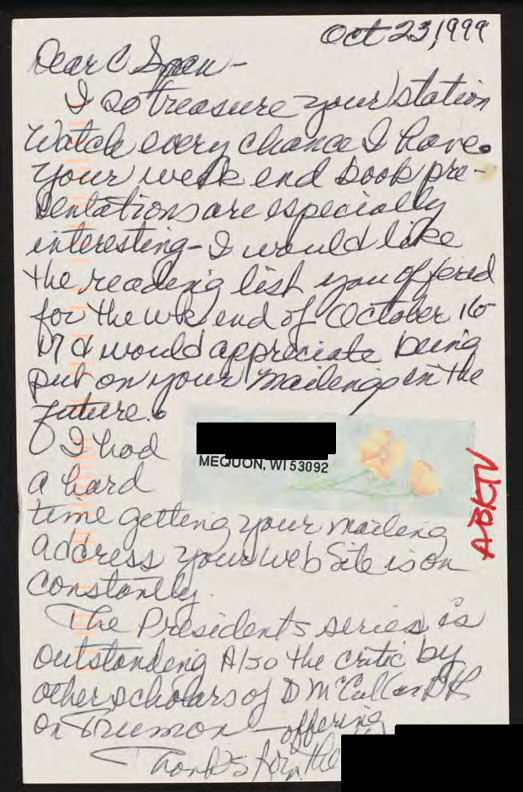 Oct 23, 1999
Dear C Span -
I so treasure your station
Watch every chance I have.
Your week end book pre-
sentations are especially
interesting - I would like
the reading list you offered
for the wk end of October 16
17 & would appreciate being
put on your mailings in the
future.
I had
a hard
MEQUON, WI 53092
ABKTV
time getting your maileng
address your web site is on
constantly.
The Presidents series is
outstanding Also the critic by
other scholars of D McCullar
on Truman offering
Thanks for the